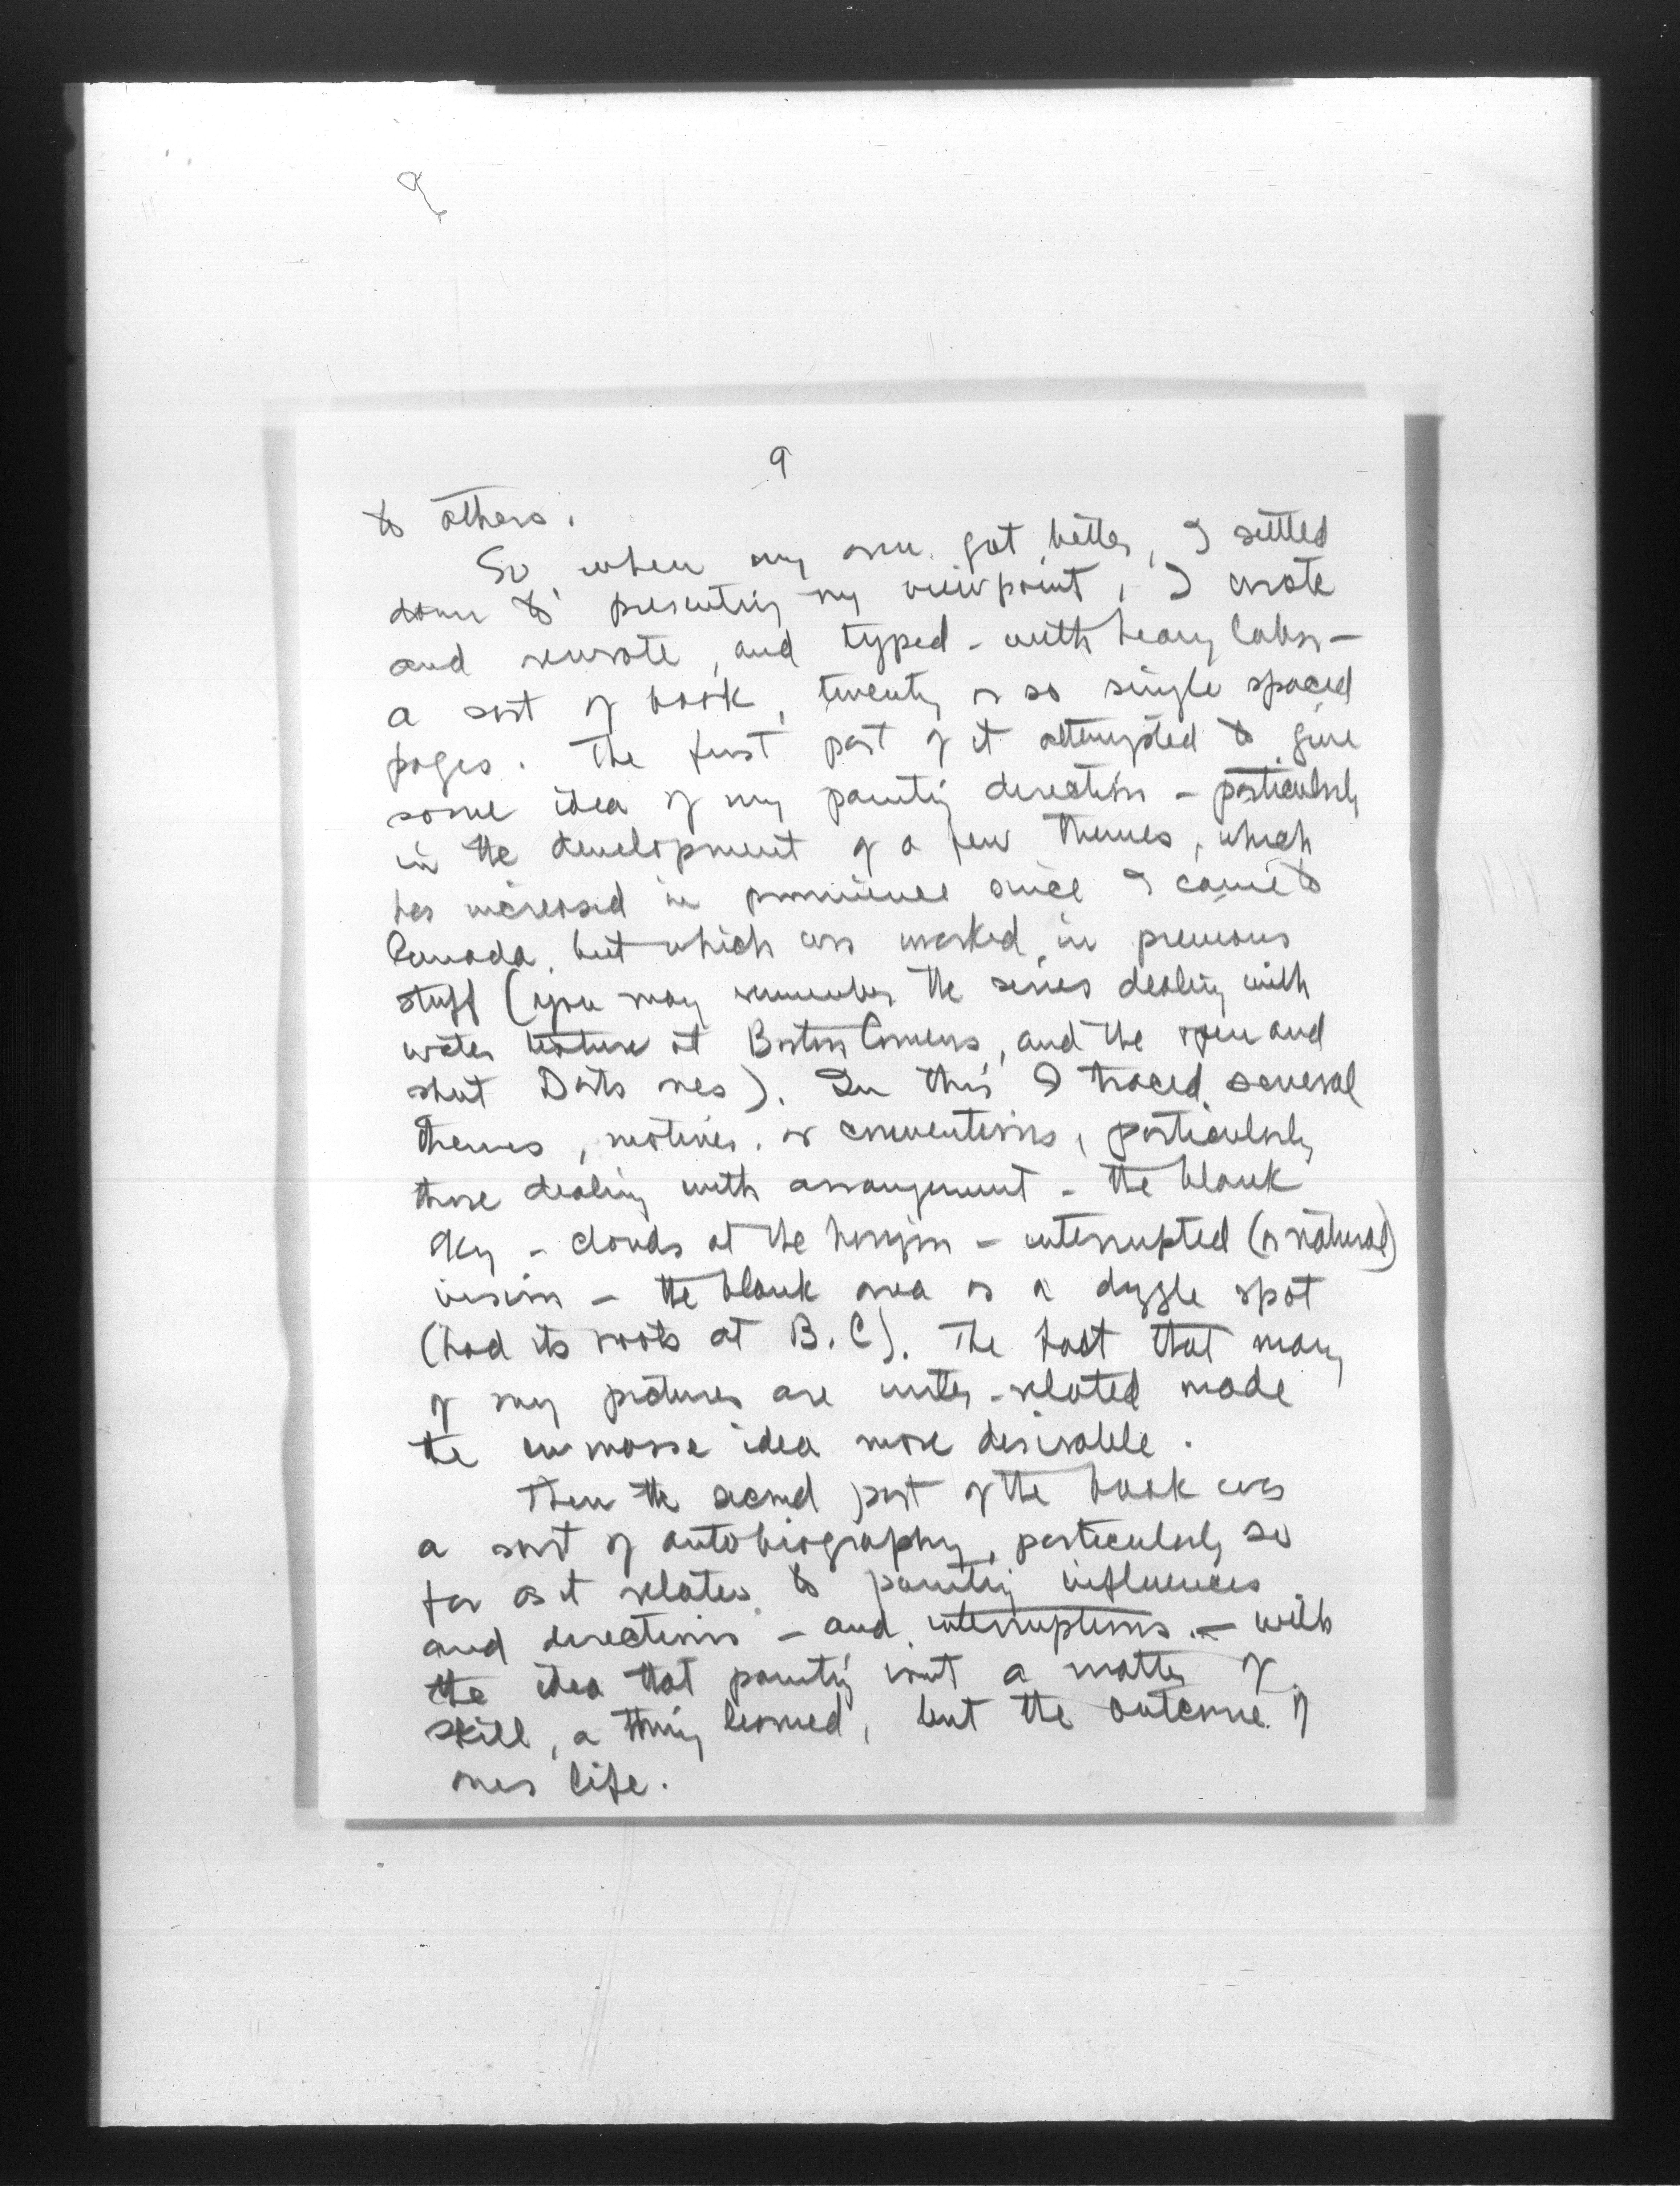 9
9
to others.
So, when my arm got better, I settled
down to presenting my viewpoint, I wrote
and rewrote, and typed - with heavy labor -
a sort of book, twenty or so single spaced
pages. The first part of it attempted to give
some idea of my painting direction - particularly
in the development of a few themes, which
has increased in prominence since I came to
Canada, but which was marked in previous
stuff (you may remember the series dealing with
water texture at Boston Corners, and the open and
shut Dorts ones). In this I traced several
themes, motives, or conventions, particularly
those dealing with arrangement - the blank
sky - clouds at the horizon - interrupted (or natural)
vision - the blank area as a dazzle spot
(had its roots at B.C). The fact that many
of my pictures are inter-related made
the en masse idea more desirable.
Then the second part of the book was
a sort of autobiography, particularly so
far as it relates to painting influences
and directions - and interruptions - with
the idea that painting isnt a matter of
skill, a thing learned, but the outcome of
ones life.